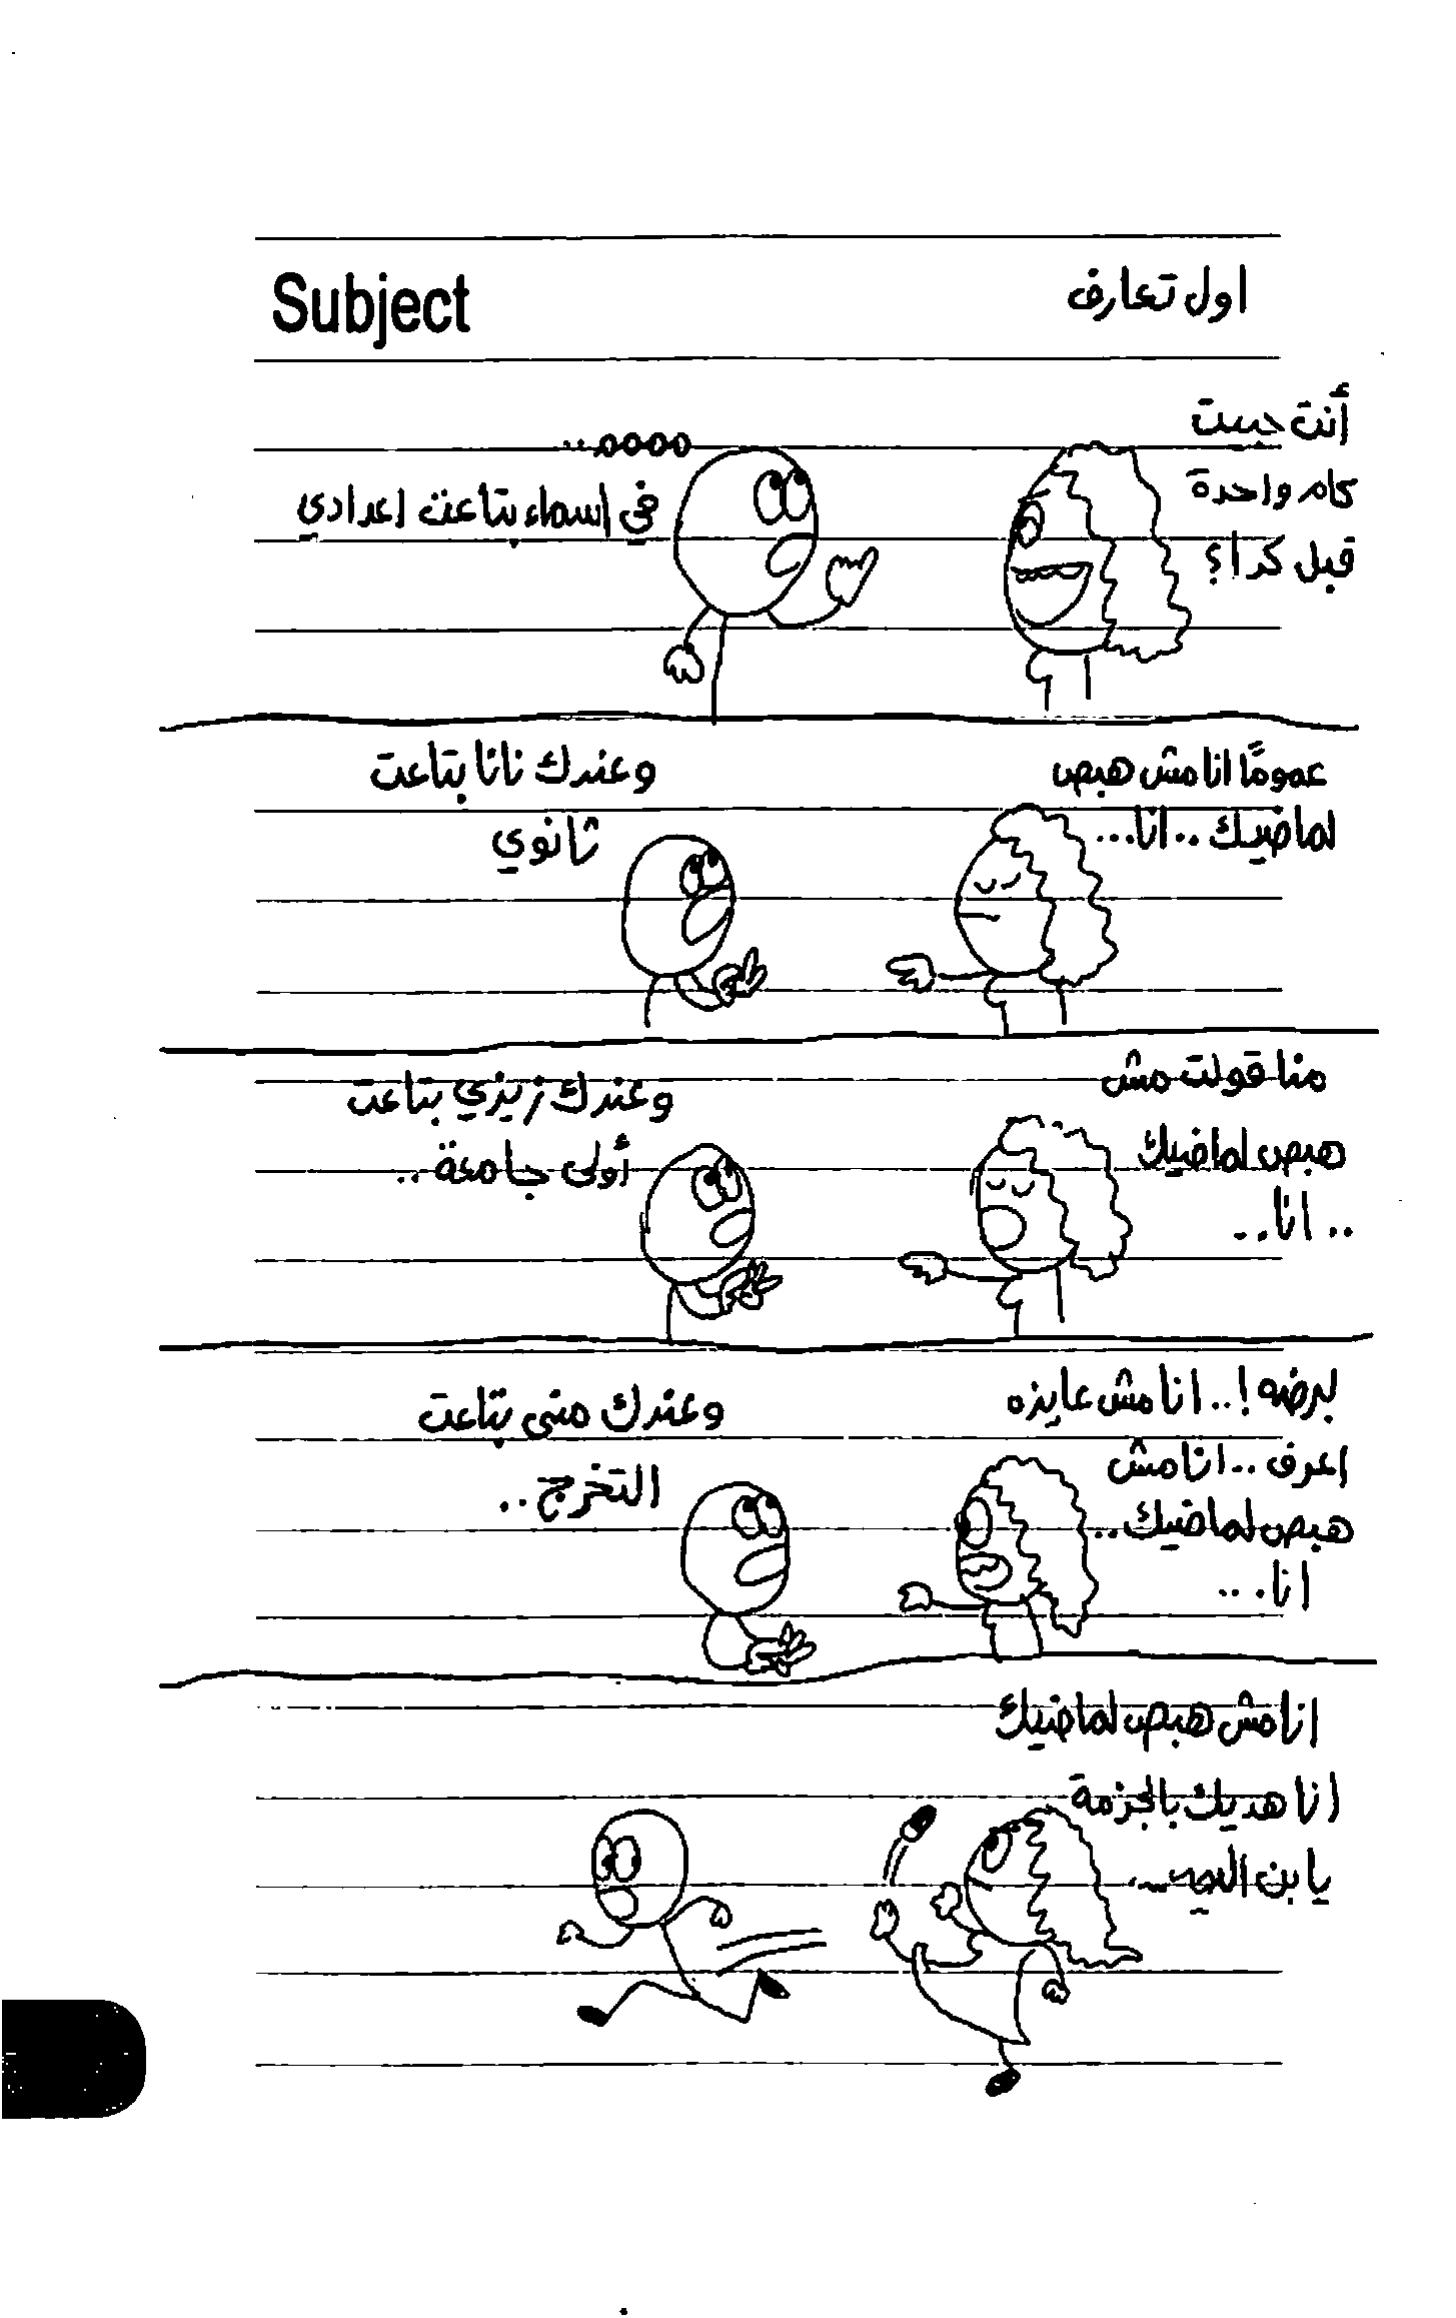 Subject
اول تعارف
أنت حبيت
كام واحدة
قبل كدا؟
oooo..
في اسماء بتاعت اعدادي
عمومًا انا مش هبص
لماضيك .. انا...
وعندك نانا بتاعت
ثانوي
منا قولت مش
هبص لماضيك
.. انا..
وعندك زيزي بتاعت
أولى جامعة ..
برضه !.. انا مش عايزه
اعرف .. انا مش
هبص لماضيك..
انا...
وعندك منى بتاعت
التخرج ..
انا مش هبص لماضيك
انا هديك بالجزمة
يا بن